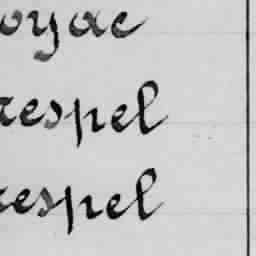 oyac
respel
respel